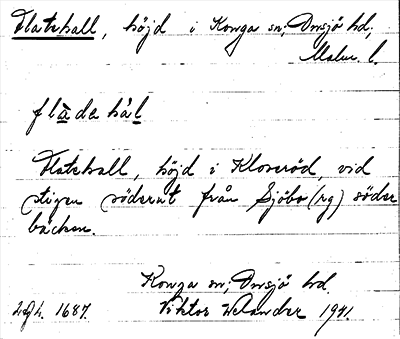 Flatehall, höjd i Konga sn; Onsjö hd,
Malm. l.
flàdehål
Flatehall, höjd i Klöveröd, vid
stigen söderut från Sjöbo (rg) söder
bäcken.
Konga sn; Onsjö hd.
1687. Viktor Welander 1941.